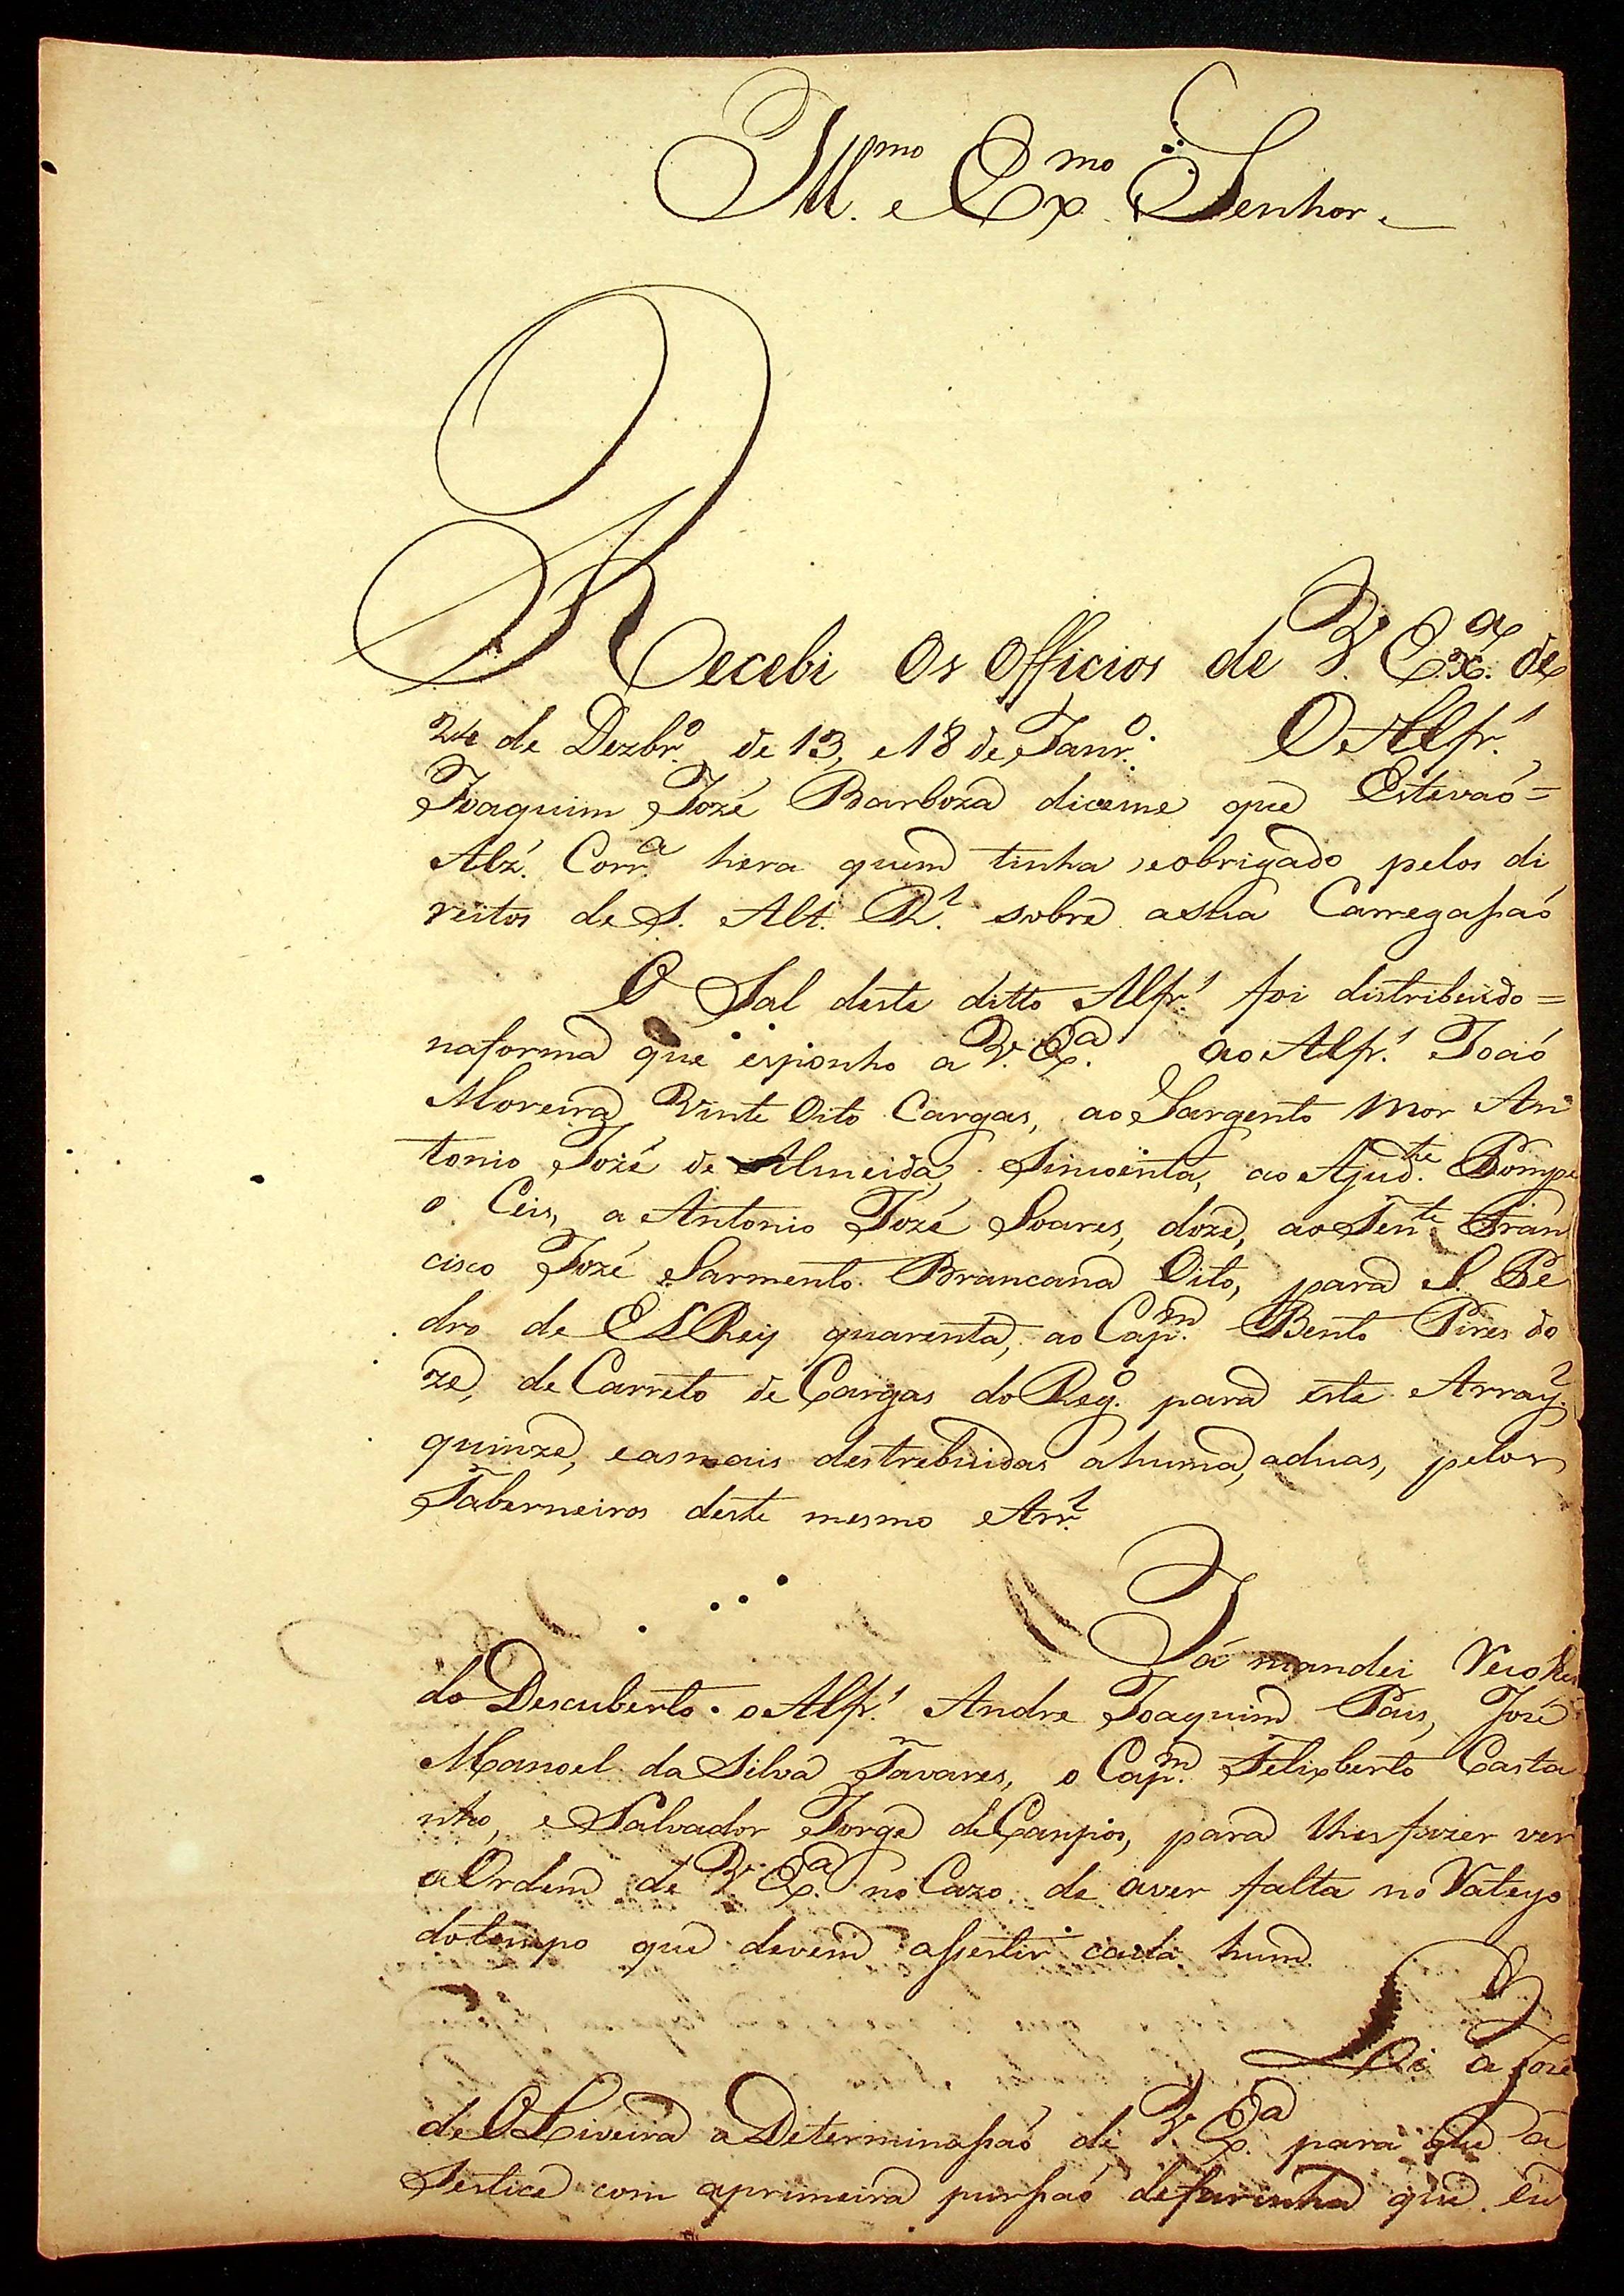 Ill.mo e Ex.mo Senhor
Recebi os Officios de V. Ex.a de
24 de Dezbr.o de 13, e 18 de Janr.o. O Alfr.
Joaquim Jozé Barboza diceme que Estevaó=
Alz. Corr.a hera quem tinha seobrigado pelos di
reitos de S. Alt. R.l sobre asua Carregasaó
O Sal deste ditto Alfr. foi distribuido=
naforma que esponho a V. Ex.a ao Alfr. Joaó
Moreira Vinte Oito Cargas, ao Sargento Mor An
tonio Jozé de Almeida, Sincoenta, ao Ajud.te Pompe
o Ceis, a Antonio Jozé Soares, doze, ao Ten.te Fran
cisco Jozé Sarmento Brancana Oito, para S. Pe
dro de El Rey quarenta, ao Cap.m Bento Pires do
ze, de Carreto de Cargas do Reg.o para este Array.l
quinze, easmais destrebuidas ahuma, aduas, pelos
Taberneiros deste mesmo Arr.l
Já mandei
do Descuberto o Alfr. Andre Joaquim Pais, José
Manoel da Silva Tavares, o Cap.m Felixberto Casta
nho, e Salvador Jorge de Canpos, para lhesfazer ver
aOrdem de V. Ex.a no Cazo de aver falta no
dotempo que devem assestir cada hum
Li a Joze
de OLiveira aDeterminasaó de V. Ex.a para que a
Sestice com aprimeira pursaó defarinha que eu